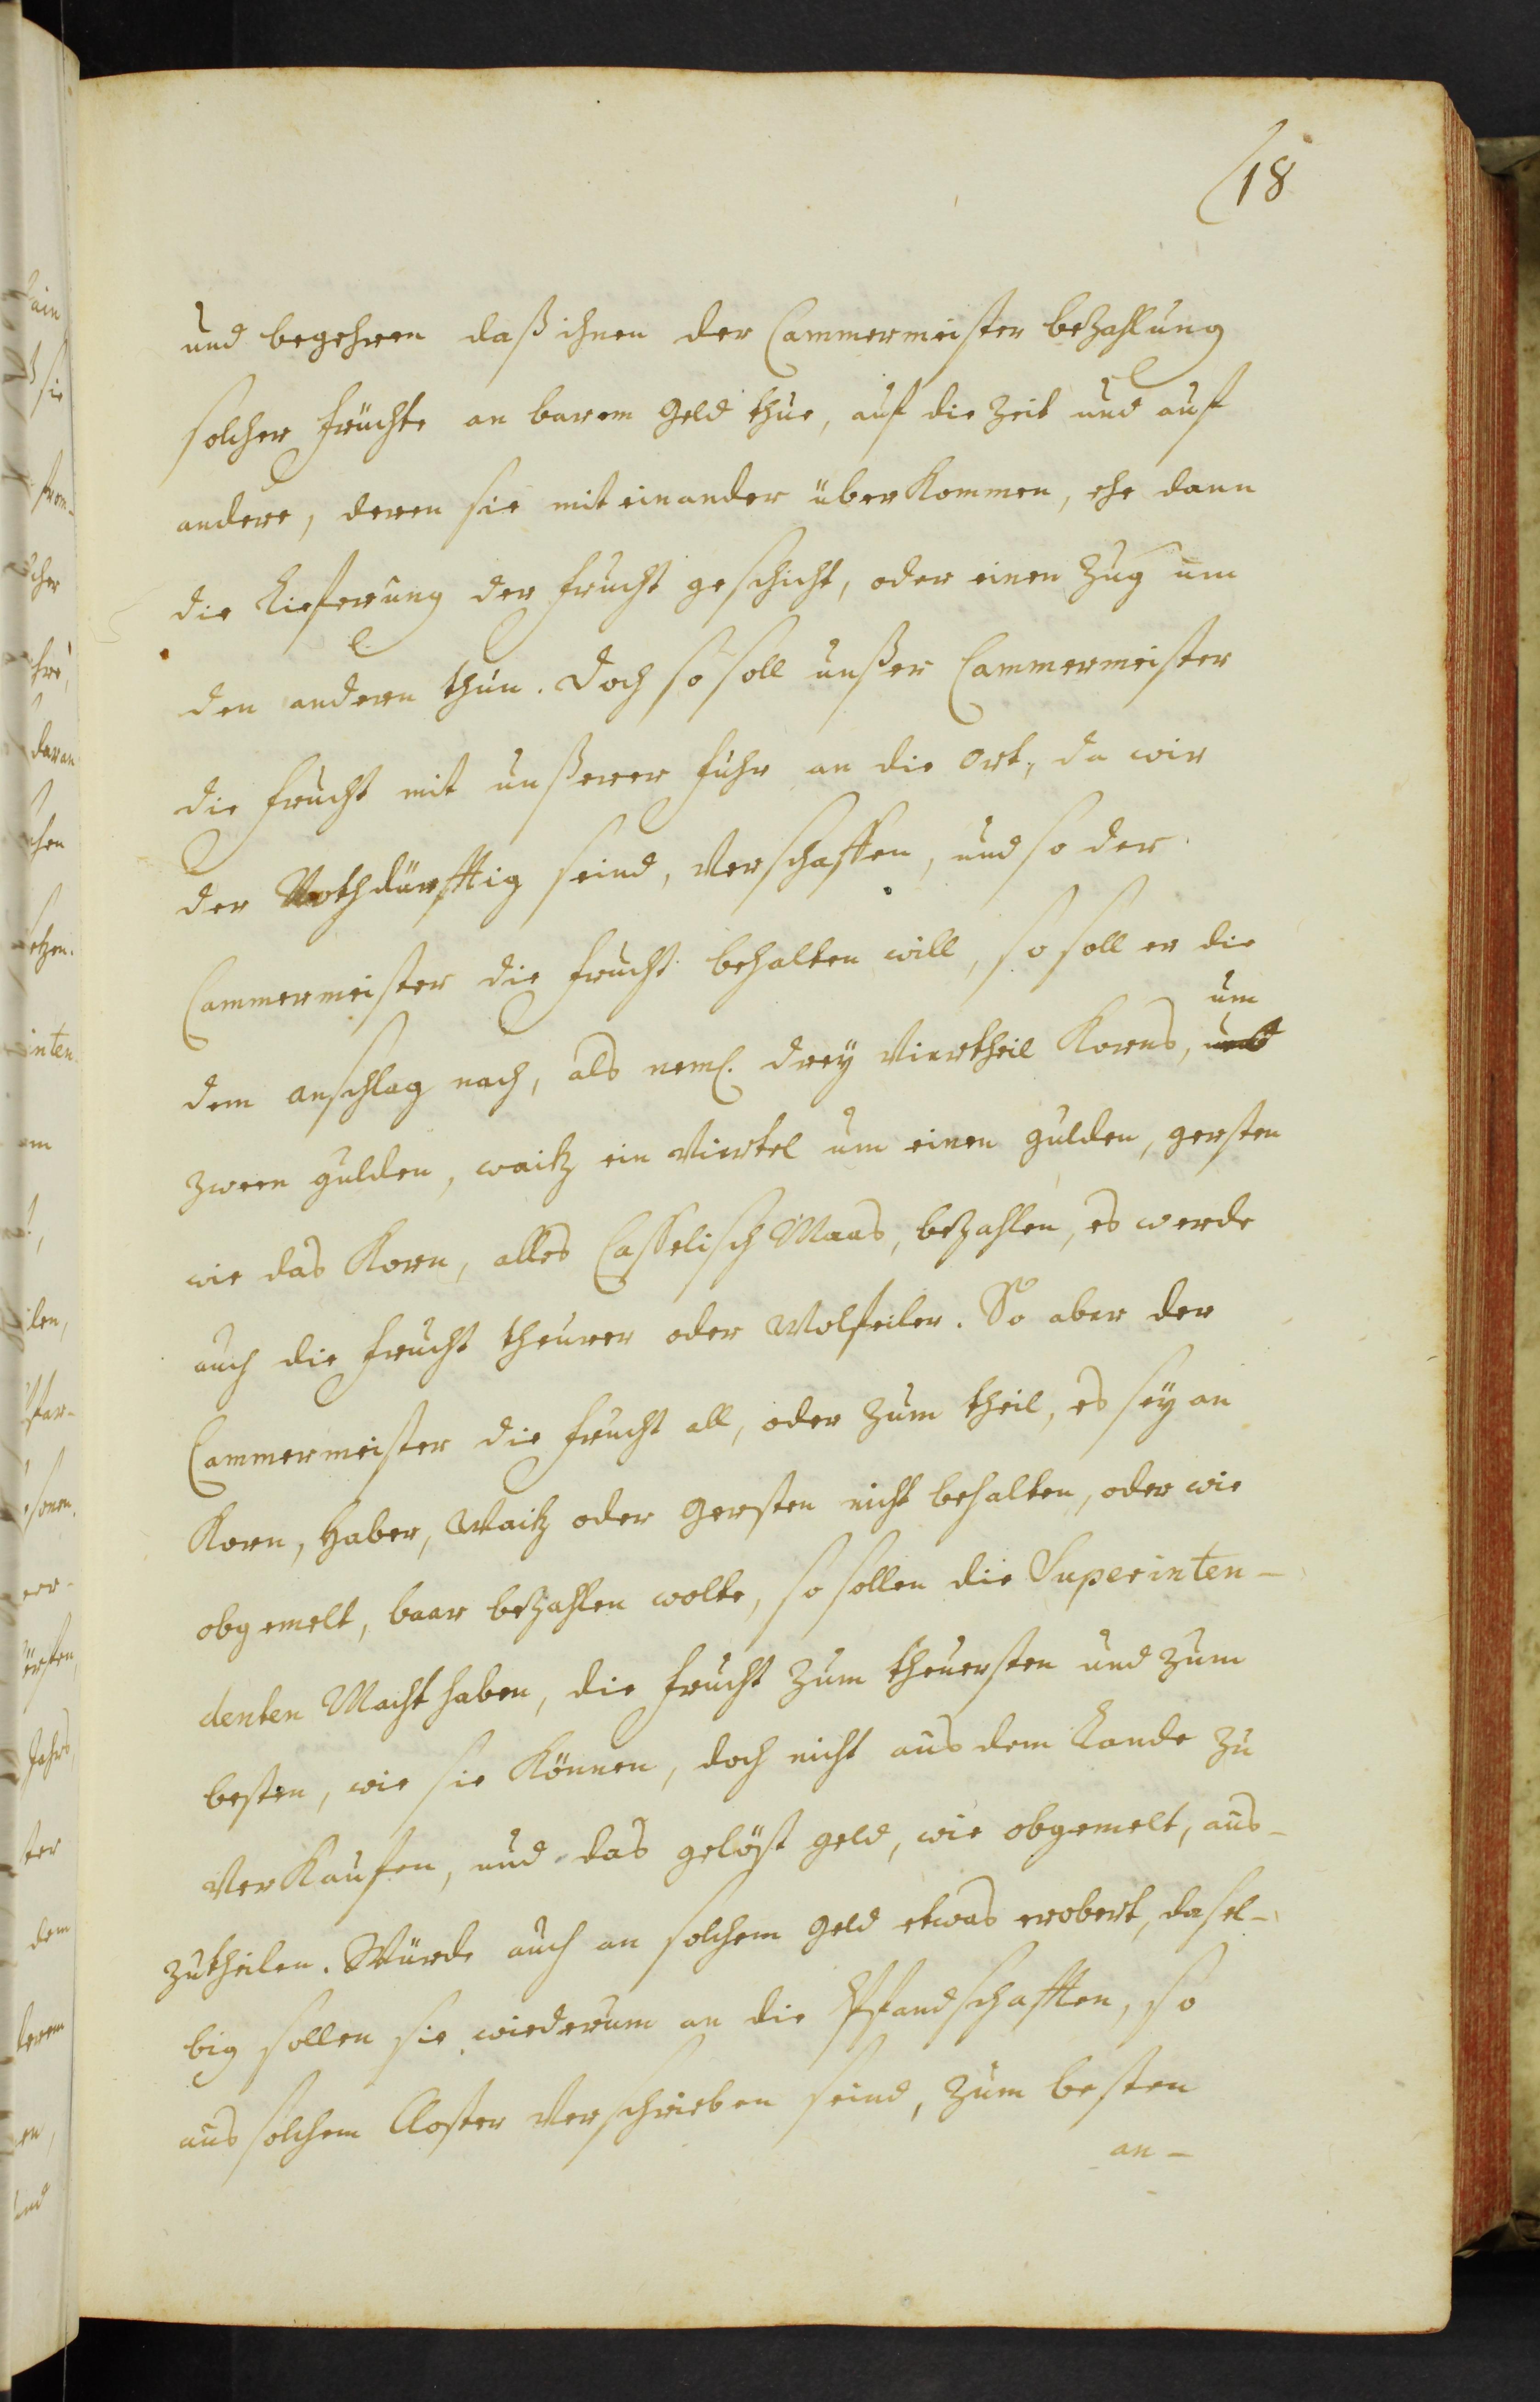 18
und begehren daß ihnen der Cammermeister bezahlung
solcher früchte an barem Geld thue, auf die Zeit und auf
andere, deren sie mit einander überkommen, ehe dann
die Lieferung der frucht geschicht, oder einen Zug um
den andern thun. Doch so soll unßer Cammermeister
die frucht mit unßerer fuhr an die Ort, da wir
der Nothdürfftig seind, verschaffen, und so der
Cammermeister die frucht behalten will, so soll er die
um
dem Anschlag nach, als neml. drey Viertheil Korns, und
zween gulden, waitz ein Viertel um einen gulden, gersten
wie das Korn, alles Casselisch Maas, bezahlen, es werde
auch die frucht theurer oder Wolfeiler. So aber der
Cammermeister die frucht all, oder zum theil, es sey an
Korn, Haber, Waitz oder Gersten nicht behalten, oder wie
obgemelt, baar bezahlen wolte, so sollen die Superinten-
denten Macht haben, die frucht zum theuersten und zum
besten, wie sie Können, doch nicht aus dem Lande zu
verkaufen, und das gelößt geld, wie obgemelt, aus-
zutheilen. Würde auch an solchem geld etwas erobert, dasel-
big sollen sie wiederum an die Pfandschafften, so
aus solchem Closter verschrieben seind, zum besten
an-